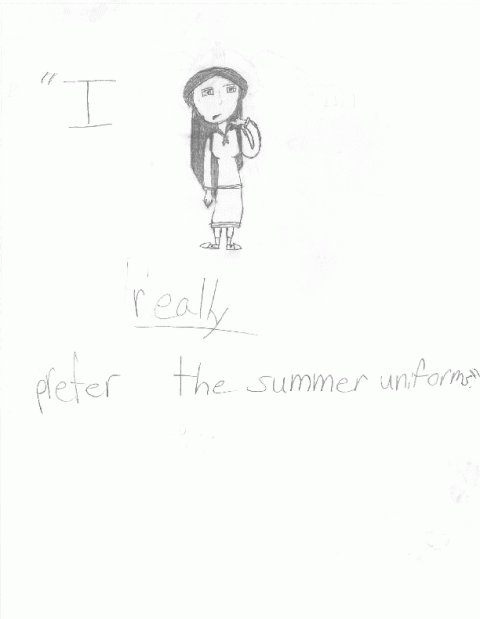 "I
really
prefer the summer uniforms"